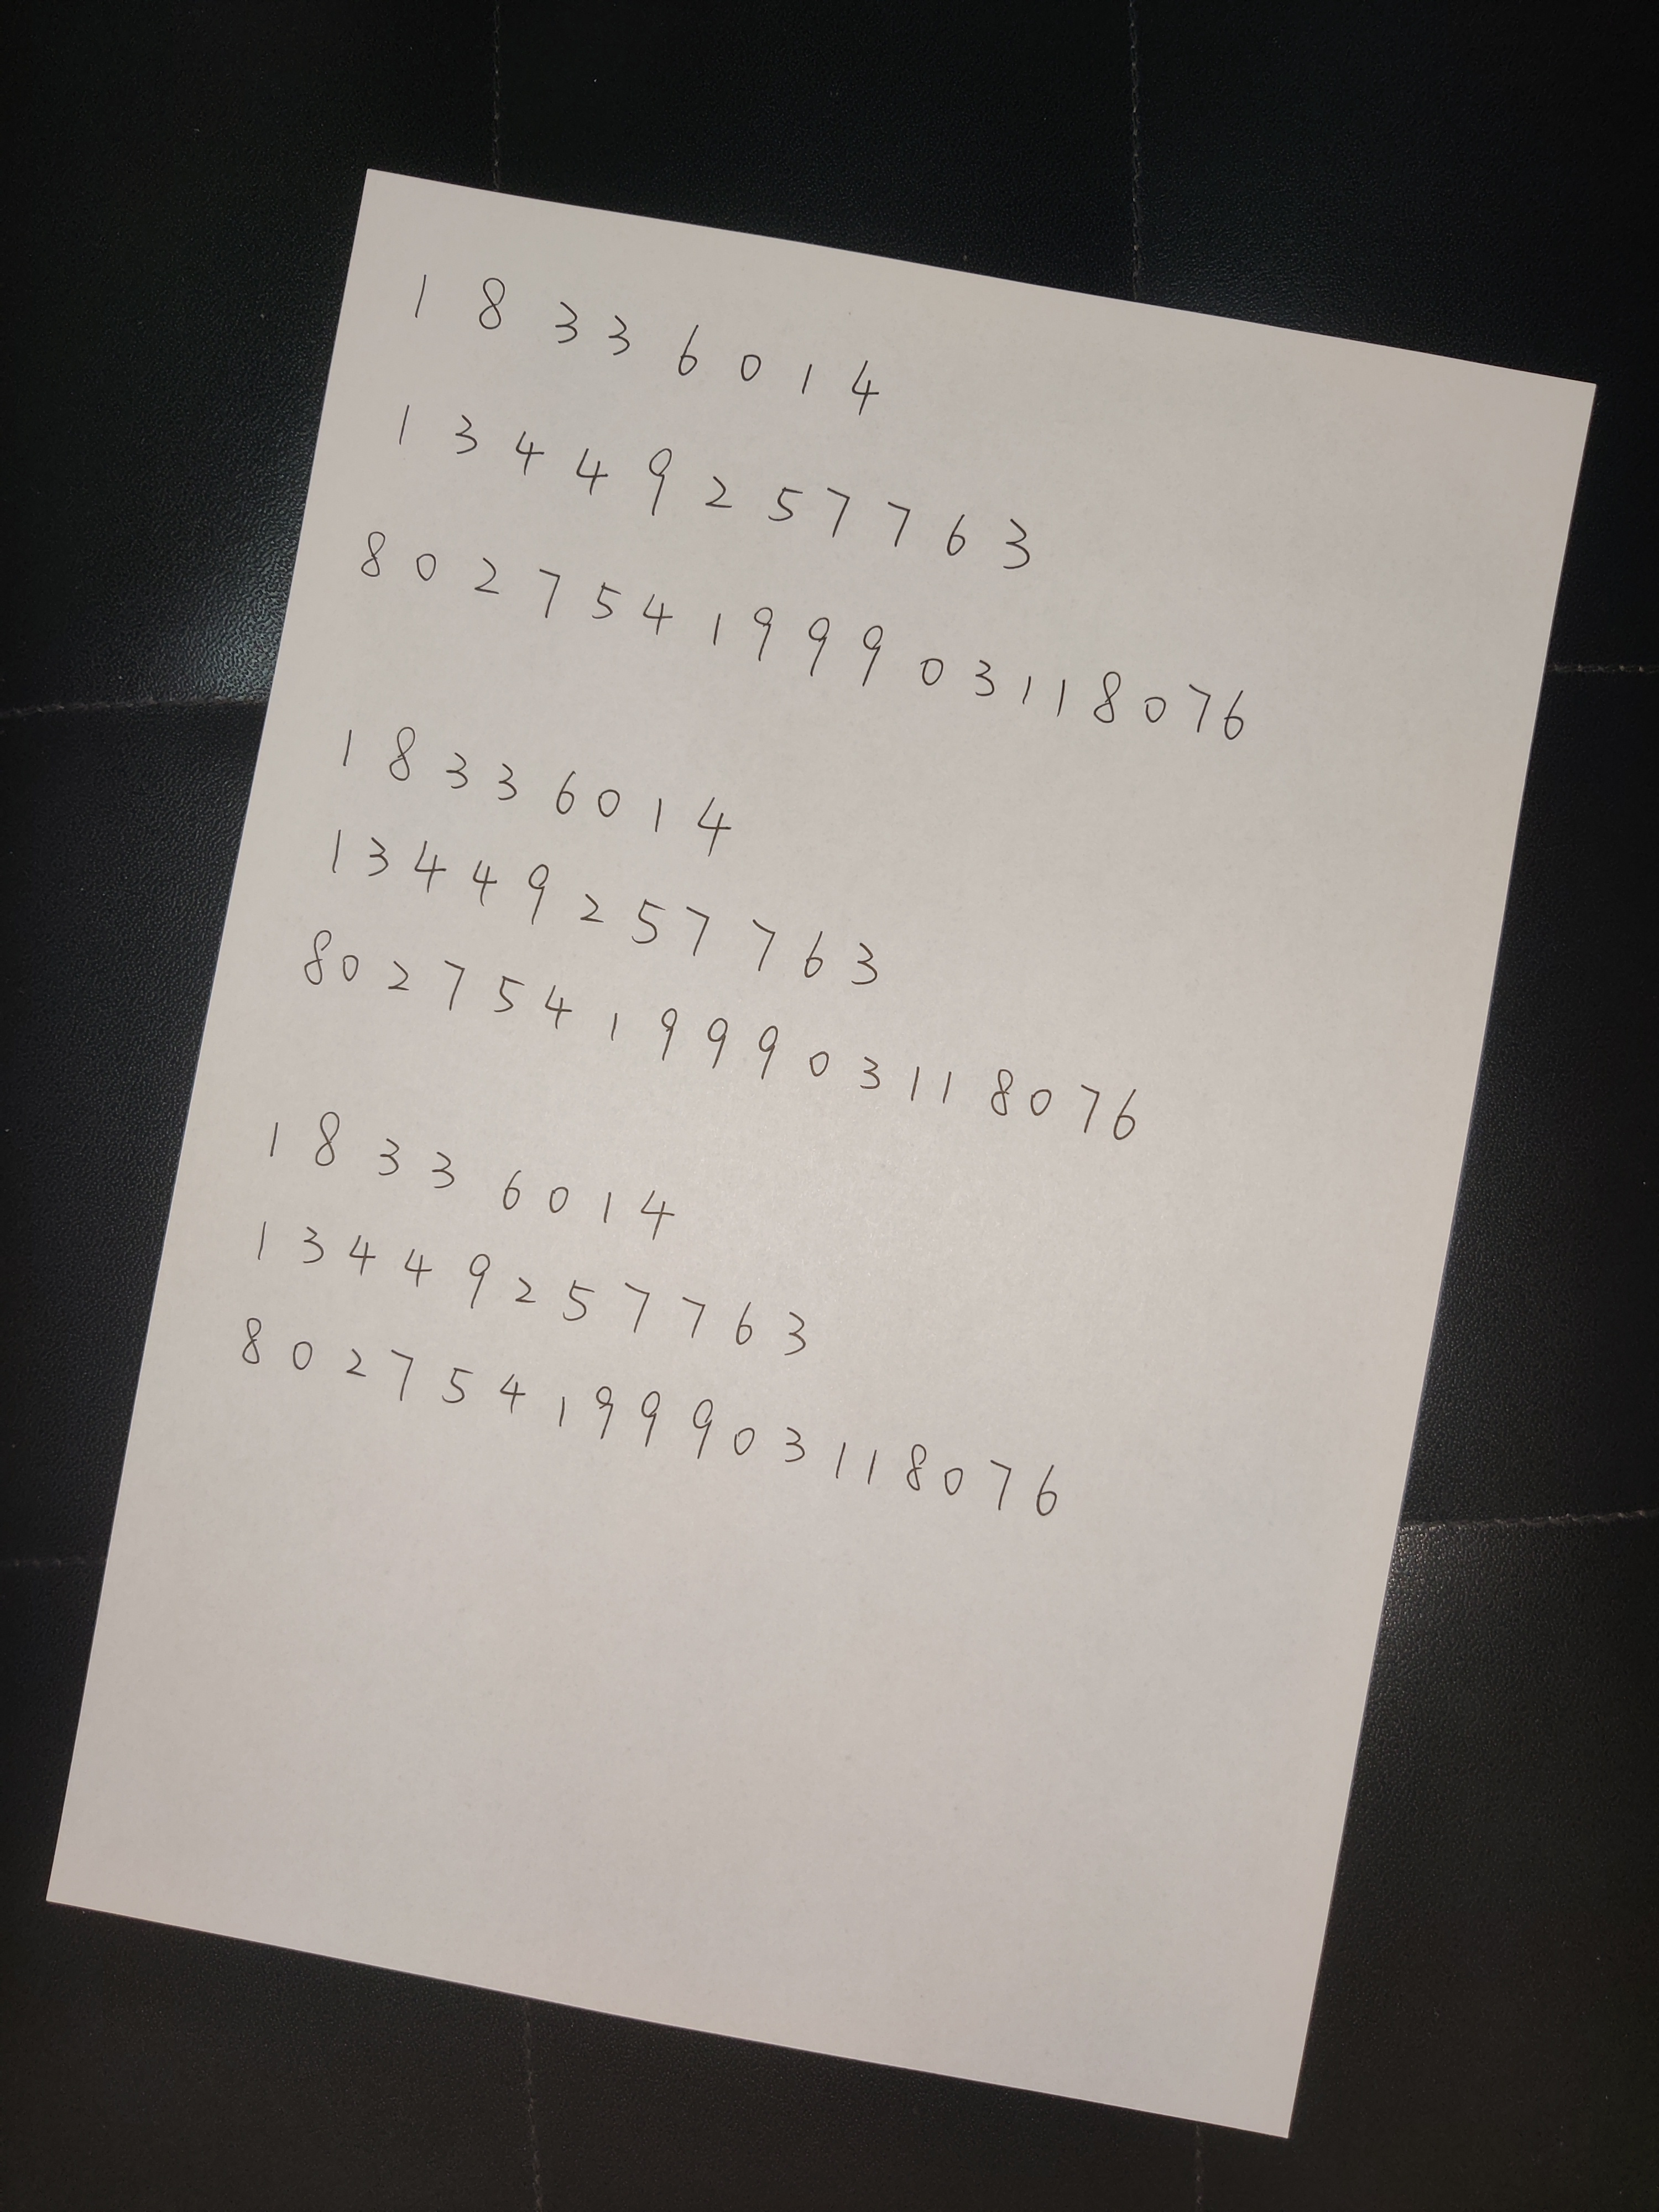 1 8 3 3 6 0 1 4
1 3 4 4 9 2 5 7 7 6 3
8 0 2 7 5 4 1 9 9 9 0 3 1 1 8 0 7 6
1 8 3 3 6 0 1 4
1 3 4 4 9 2 5 7 7 6 3
8 0 2 7 5 4 1 9 9 9 0 3 1 1 8 0 7 6
1 8 3 3 6 0 1 4
1 3 4 4 9 2 5 7 7 6 3
8 0 2 7 5 4 1 9 9 9 0 3 1 1 8 0 7 6